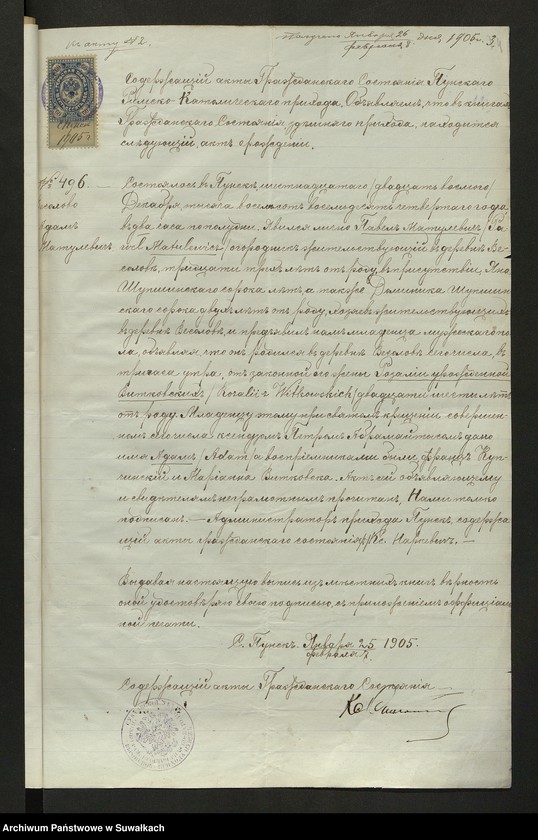 Къ акту № 2.
Получено Января 26
февраля 8 дня, 1905 г. 3.
Содержащій акты Гражданскаго Состоянія Пунскаго
Римско-Католическаго прихода, Объявляетъ, что въ книгахъ
Гражданскаго Состоянія, здѣшняго прихода, находится
слѣдующій, актъ о рожденіи.
1905 г.
№ 496.
Веслово
Адамъ
Матулевичъ
Состоялось въ Пунскѣ, шестнадцатаго /двадцать восьмого/
Декабря, тысяча восемьсотъ восемьдесятъ четвертаго года
въ два часа пополудни. Явился лично Павелъ Матулевичъ /Pa-
weł Matulewicz/ огородникъ жительствующій въ деревнѣ Ве-
словѣ, тридцати трехъ лѣтъ отъ роду, въ присутствіи, Яна
Шупшинскаго сорока лѣтъ, а также Доминика Шупшин-
скаго сорока двухъ лѣтъ отъ роду, хозяевъ жительствующихъ
въ деревнѣ Весловѣ, и предъявилъ намъ младенца мужескаго по-
ла, объявляя, что онъ родился въ деревнѣ Весловѣ сего числа, въ
три часа утра, отъ законной его жены Розаліи урожденной
Витковскихъ /Rozalii z Witkowskich/ двадцати шести лѣтъ
отъ роду. Младенцу этому при святомъ крещеніи совершен-
номъ сего числа ксендзомъ Петромъ Абрамайтисомъ дано
имя Адамъ /Adam/ а воспріемниками были, Францъ
и Маріанна Витковска. Актъ сей объявляющему
и свидѣтелямъ неграмотнымъ прочитанъ, Нами только
подписанъ. — Администраторъ прихода Пунскъ, содержа-
щій акты гражданскаго состоянія /-/ Кс. Наркевичъ. —
Выдавая настоящую выпись изъ мѣстныхъ книгъ вѣрность
оной удостовѣряю своею подписью, съ приложеніемъ оффиціаль-
ной печати.
С. Пунскъ. Января 25 1905.
февраля 7.
Содержащій акты Гражданскаго Состоянія
Archiwum Państwowe w Suwałkach